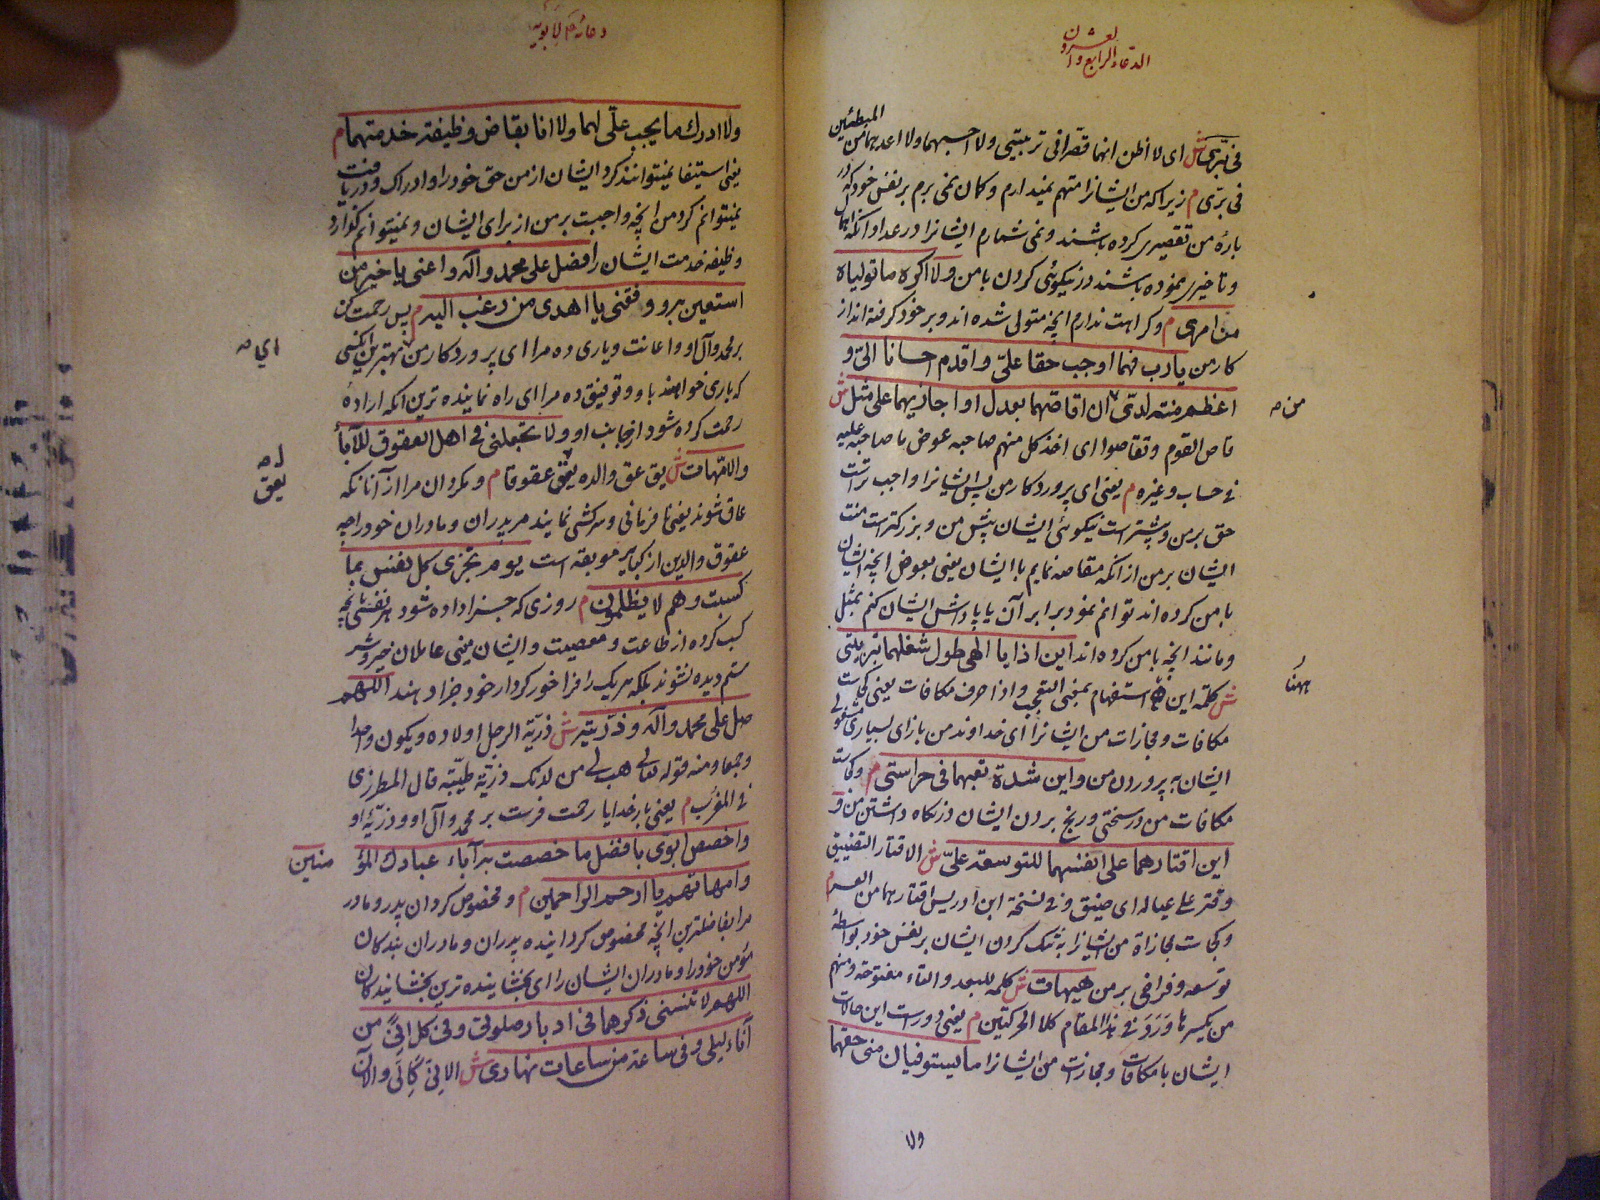 الدعاء الرابع والعشرون
المبطئين
فی برّی ش ای لا اظن انهما قصّرا فی تربیتی ولا احسبهما ولا اعدهما من
فی برّی م زیرا که من ایشانرا متهم نمیدارم و کمان نمی برم بر نفس خود که در
بارهٔ من تقصیری کرده باشند و نمی شمارم ایشانرا در عداد آنکه اهمال
و تاخیری نموده باشند در نیکوئی کردن با من ولا اکره ما تولیاه
من امری م و کراهت ندارم آنچه متولی شده اند و بر خود کرفته اند از
کار من یا رب فهما اوجب حقا علیّ و اقدم احسانا الیّ و
اعظم منته لدیّ ان اقاصّهما بعدل او اجازیهما علی مثل ش
من صه
قاص القوم و تقاصوا ای اخذ کل منهم صاحبه عوض ما صاحبه علیه
فی حساب و غیره م یعنی ای پروردکار من پس ایشانرا واجب تراست
حق بر من و پیشتر است نیکوئی ایشان پیش من و بزرکتر است منت
ایشان بر من از آنکه مقاصه نمایم با ایشان یعنی بعوض آنچه ایشان
با من کرده اند توانم نمود برابر آن یا پاداش ایشان کنم بمثل
و مانند آنچه با من کرده اند این اذا یا الهی طول شغلهما بتربیتی
ههنا
ش کلمه این استفهام بمعنی التعجب و اذا حرف مکافات یعنی کجاست
مکافات و مجازات من ایشانرا ای خداوند من بازای بسیاری مشغولی
ایشان به پروردن من و این شدة تعبهما فی حراستی م و کجاست
مکافات من در سختی و رنج بردن ایشان در نکاه داشتن من و
این اقتارهما علی انفسهما للتوسعة علیّ ش الاقتار التضییق
و قتر علی عیاله ای ضیق و فی نسخة ابن ادریس اقتارهما من العسر م
و کجاست مجازاة من ایشانرا به تنک کردن ایشان بر نفس خود بواسطهٔ
توسعه و فراخی بر من هیهات ش کلمه للبعد و التاء مفتوحة و منهم
من یکسرها و ورد فی هذا المقام کلا الحرکتین م یعنی دور است این حالات
ایشان با مکافات و مجازات من ایشانرا ما یستوفیان منی حقهما
ولا
دعائه م لابویه
ولا ادرک ما یجب علیّ لهما ولا انا بقاض وظیفة خدمتهما م
یعنی استیفا نمیتوانند کرد ایشان از من حق خود را و ادراک و دریافت
نمیتوانم کرد من آنچه واجبست بر من از برای ایشان و نمیتوانم کذارد
وظیفه خدمت ایشان را فصل علی محمد و آله و اعنی یا خیر من
استعین به و وفقنی یا اهدی من رغب الیه م پس رحمت کن
بر محمد و آل او و اعانت و یاری ده مرا ای پروردکار من بهترین آنکسی
ای صه
که یاری خواهند باو و توفیق ده مرا ای راه نماینده ترین آنکه ارادهٔ
رحمت کرده شود از جانب او ولا تجعلنی فی اهل العقوق للآباء
والامّهات ش یق عق والده یعق عقوقا م و مکردان مرا از آنانکه
یعق
عاق شوند یعنی نافرمانی و سرکشی نمایند مر پدران و مادران خود را چه
عقوق والدین از کبایر موبقه است یوم تجزی کل نفس بما
کسبت و هم لا یظلمون م روزی که جزا داده شود هر نفسی بآنچه
کسب کرده از طاعت و معصیت و ایشان یعنی عاملان خیر و شر
ستم دیده نشوند بلکه هر یک را فراخور کردار خود جزا دهند اللهم
صل علی محمد و آله و ذرّیته ش ذرّیّة الرجل اولاده و یکون واحدا
و جمعا و منه قوله تعالی هب لی من لدنک ذرّیّة طیّبة قال المطرزی
فی المغرب م یعنی بار خدایا رحمت فرست بر محمد و آل او و ذرّیّه او
واخصص ابوی بافضل ما خصصت به آباء عبادک المؤ
منین
و امهاتهم یا ارحم الراحمین م و مخصوص کردان پدر و مادر
مرا بفاضلترین آنچه مخصوص کردانیده پدران و مادران بندکان
مؤمن خود را و مادران ایشان را ای بخشاینده ترین بخشایندکان
اللهم لا تنسنی ذکرهما فی ادبار صلوتی و فی کل انیً من
آناء لیلی و فی ساعة من ساعات نهاری ش الانی کالی والآن